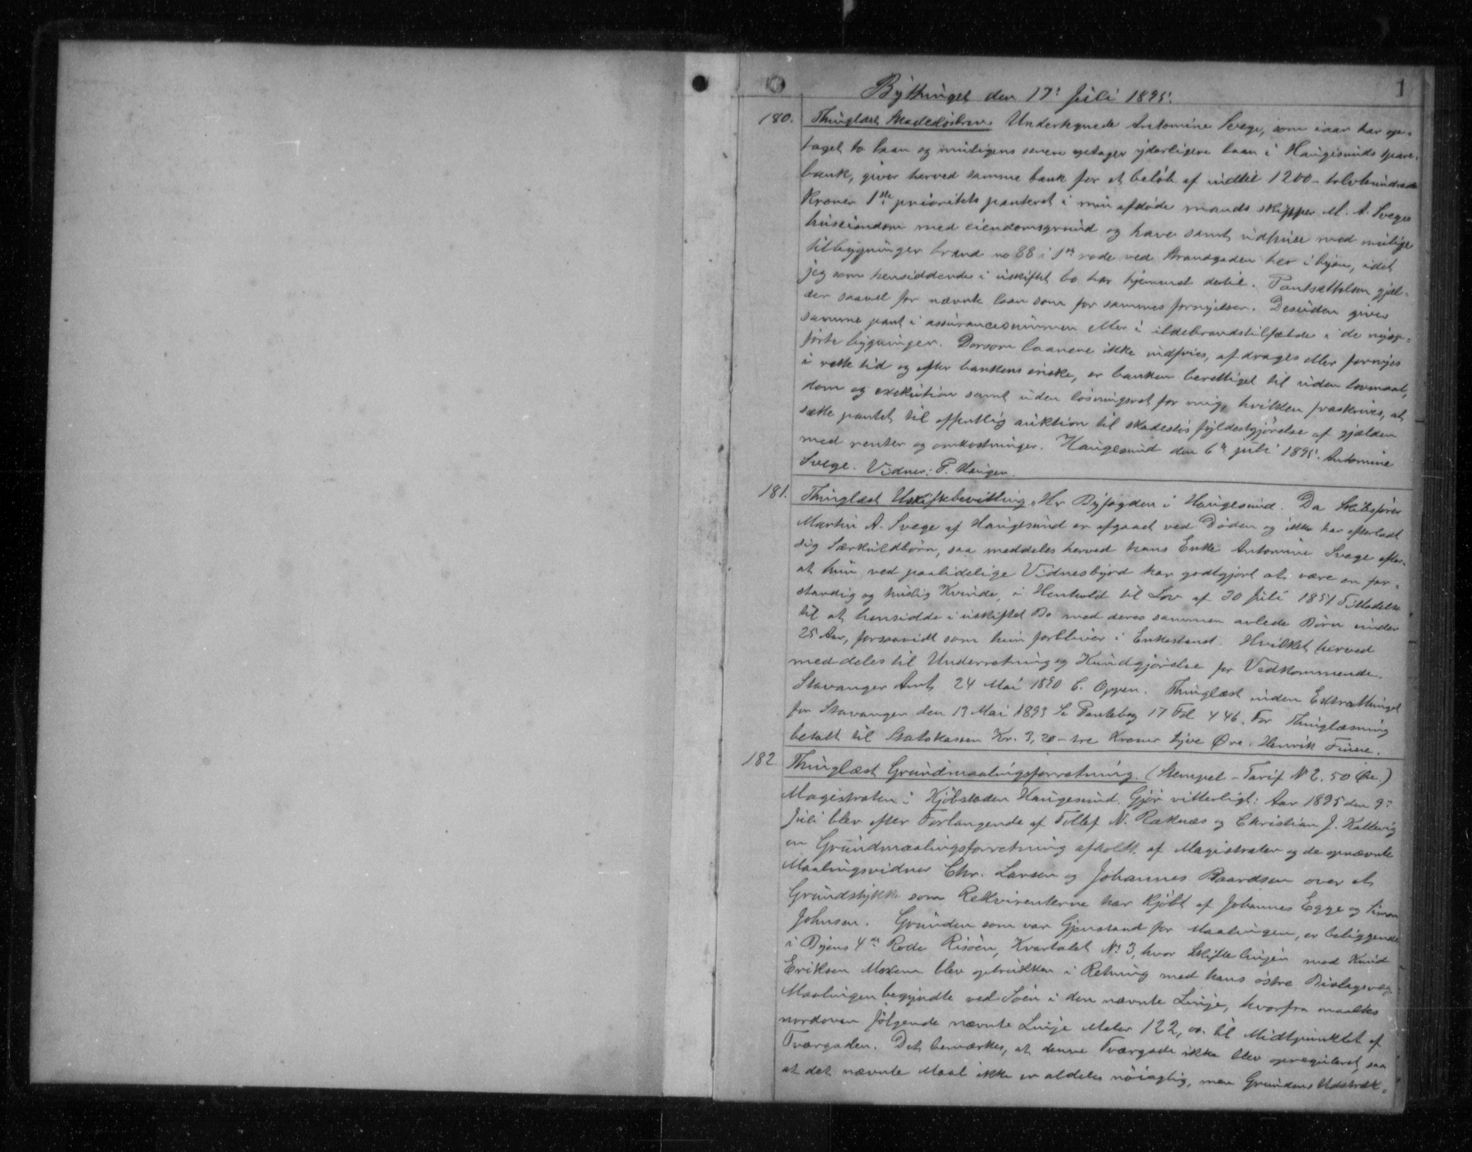 1
Bything​et den 17de juli 1895.
180. Thinglæst Skadesløsbrev. Undertegnede Antomine Svege, som iaar har op-
taget to laan og muligens senere optager yderligere laan i Haugesunds spare-
bank, giver herved samme bank for et beløb af indtil 1200 – tolvhundrede
Kroner 1ste prioritets panteret i min afdøde mands skipper M. A. Sveges
huseiendom med eiendomsgrund og have samt udhuse med mulige
tilbygninger brand no 88 i 1ste rode ved Strandgaden her i byen, idet
jeg som hensiddende i uskiftet bo har hjemmel dertil. Pantsættelsen gjæl-
der saavel for nævnte laan som for sammes fornyelser. Desuden gives
samme pant i assurancesummen eller i ildebrandstilfælde i de nyop-
førte bygninger. Dersom laanene ikke indfries, afdrages eller fornyes
i rette tid og efter bankens ønske, er banken berettiget til uden lovmaal,
dom og exekution samt uden løsningsret for mig, hvilken fraskrives, at
sætte pantet til offentlig auktion til skadesløs fyldestgjørelse af gjælden
med renter og omkostninger. Haugesund den 6te juli 1895. Antomine
Svege. Vidner: P. Haugen.
181. Thinglæst Uskiftebevilling. Hr Byfogden i Haugesund. Da Skibsfører
Martin A. Svege af Haugesund er afgaaet ved Døden og ikke har efterladt
sig Særkuldbørn, saa meddeles herved hans Enke Antomine Svege efter
at hun ved paalidelige Vidnesbyrd har godtgjort at være en for-
standig og huslig Kvinde, i Henhold til Lov af 30 Juli 1851 Tilladelse
til at hensidde i uskiftet Bo med deres sammen avlede Børn under
25 Aar, forsaavidt som hun forbliver i Enkestand. Hvilket herved
meddeles til Underretning og Kundgjørelse for Vedkommende.
Stavanger Amt, 24 Mai 1890 C. Oppen. Thinglæst inden Extrathinget
for Stavanger den 13 Mai 1893 Se Pantebog 17 Fol. 446. For Thinglæsning
betalt til Statskassen Kr. 3,20 – tre Kroner tyve Øre. Henrik Finne.
182. Thinglæst Grundmaalingsforretning. (Stempel – Tarif No 2. 50 Øre.)
Magistraten i Kjøbstaden Haugesund Gjør vitterligt: Aar 1895 den 9de
Juli blev efter Forlangende af Tollef N. Røknæs og Christian J. Kallevig
en Grundmaalingsforretning afholdt af Magistraten og de opnævnte
Maalingsvidner Chr. Larsen og Johannes Baardsen over et
Grundstykke som Rekvirenterne har kjøbt af Johannes Egge og Simon
Johnsen. Grunden som var Gjenstand for Maalingen, er beliggende
i Byens 4de Rode Risøen, Kvartalet No 3, hvor Skiftelinjen med Knud
Eriksen Moxene blev optrukken i Retning med hans østre Bislagsvæg.
Maalingen begyndte ved Søen i den nævnte Linje, hvorfra maaltes
nordover følgende nævnte Linje Meter 122, til Midtpunktet af
Tværgaden. Det bemærkes, at denne Tværgade ikke blev opreguleret, saa
at det nævnte Maal ikke er aldeles nøiagtig, men Grundens Udstræk-